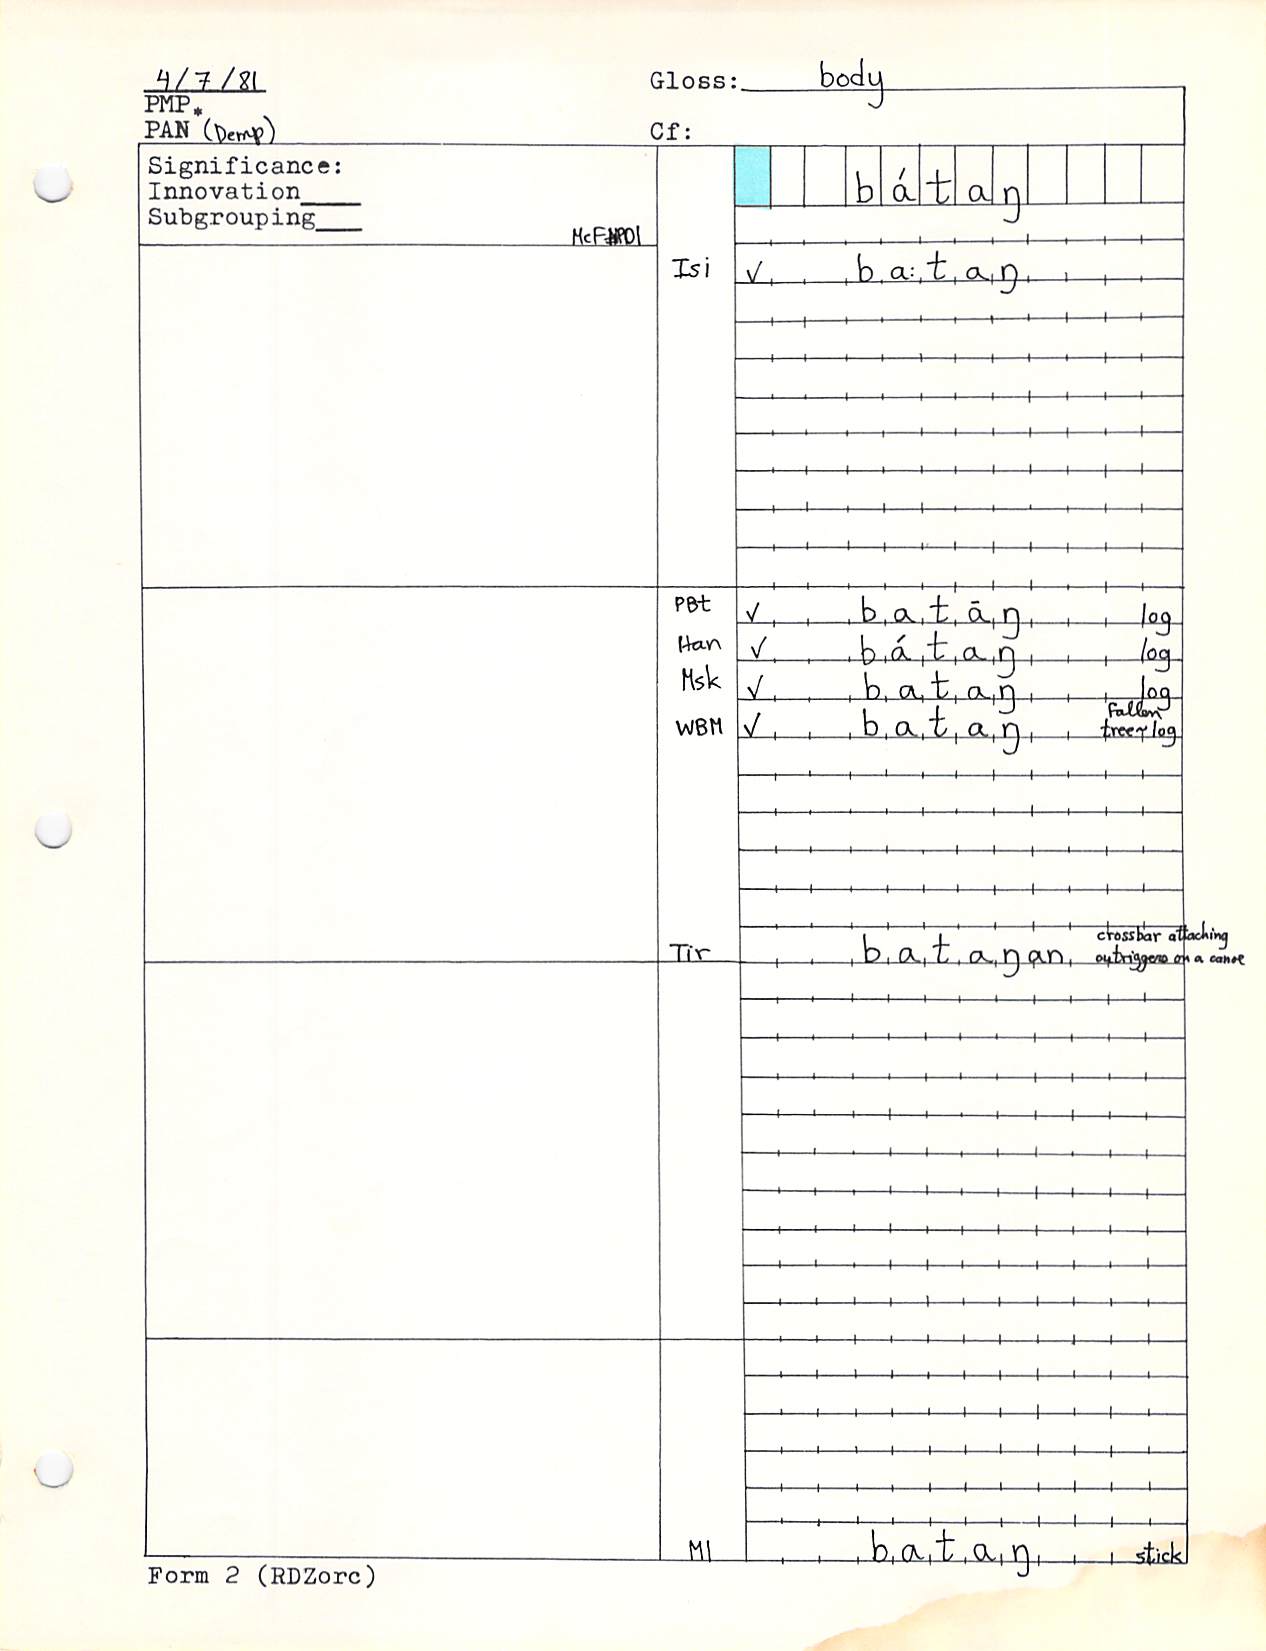 4/7/81 Gloss: body
PMP*
PAN (Demp) Cf:
Significance:
Innovation____
Subgrouping____
bátaŋ
Isi ✓ ba:taŋ
PBt ✓ batāŋ log
Han ✓ bátaŋ log
Msk ✓ bataŋ log
WBM ✓ bataŋ fallen
tree~log
Tir bataŋan crossbar attaching
outriggers on a canoe
Ml bataŋ stick
Form 2 (RDZorc)